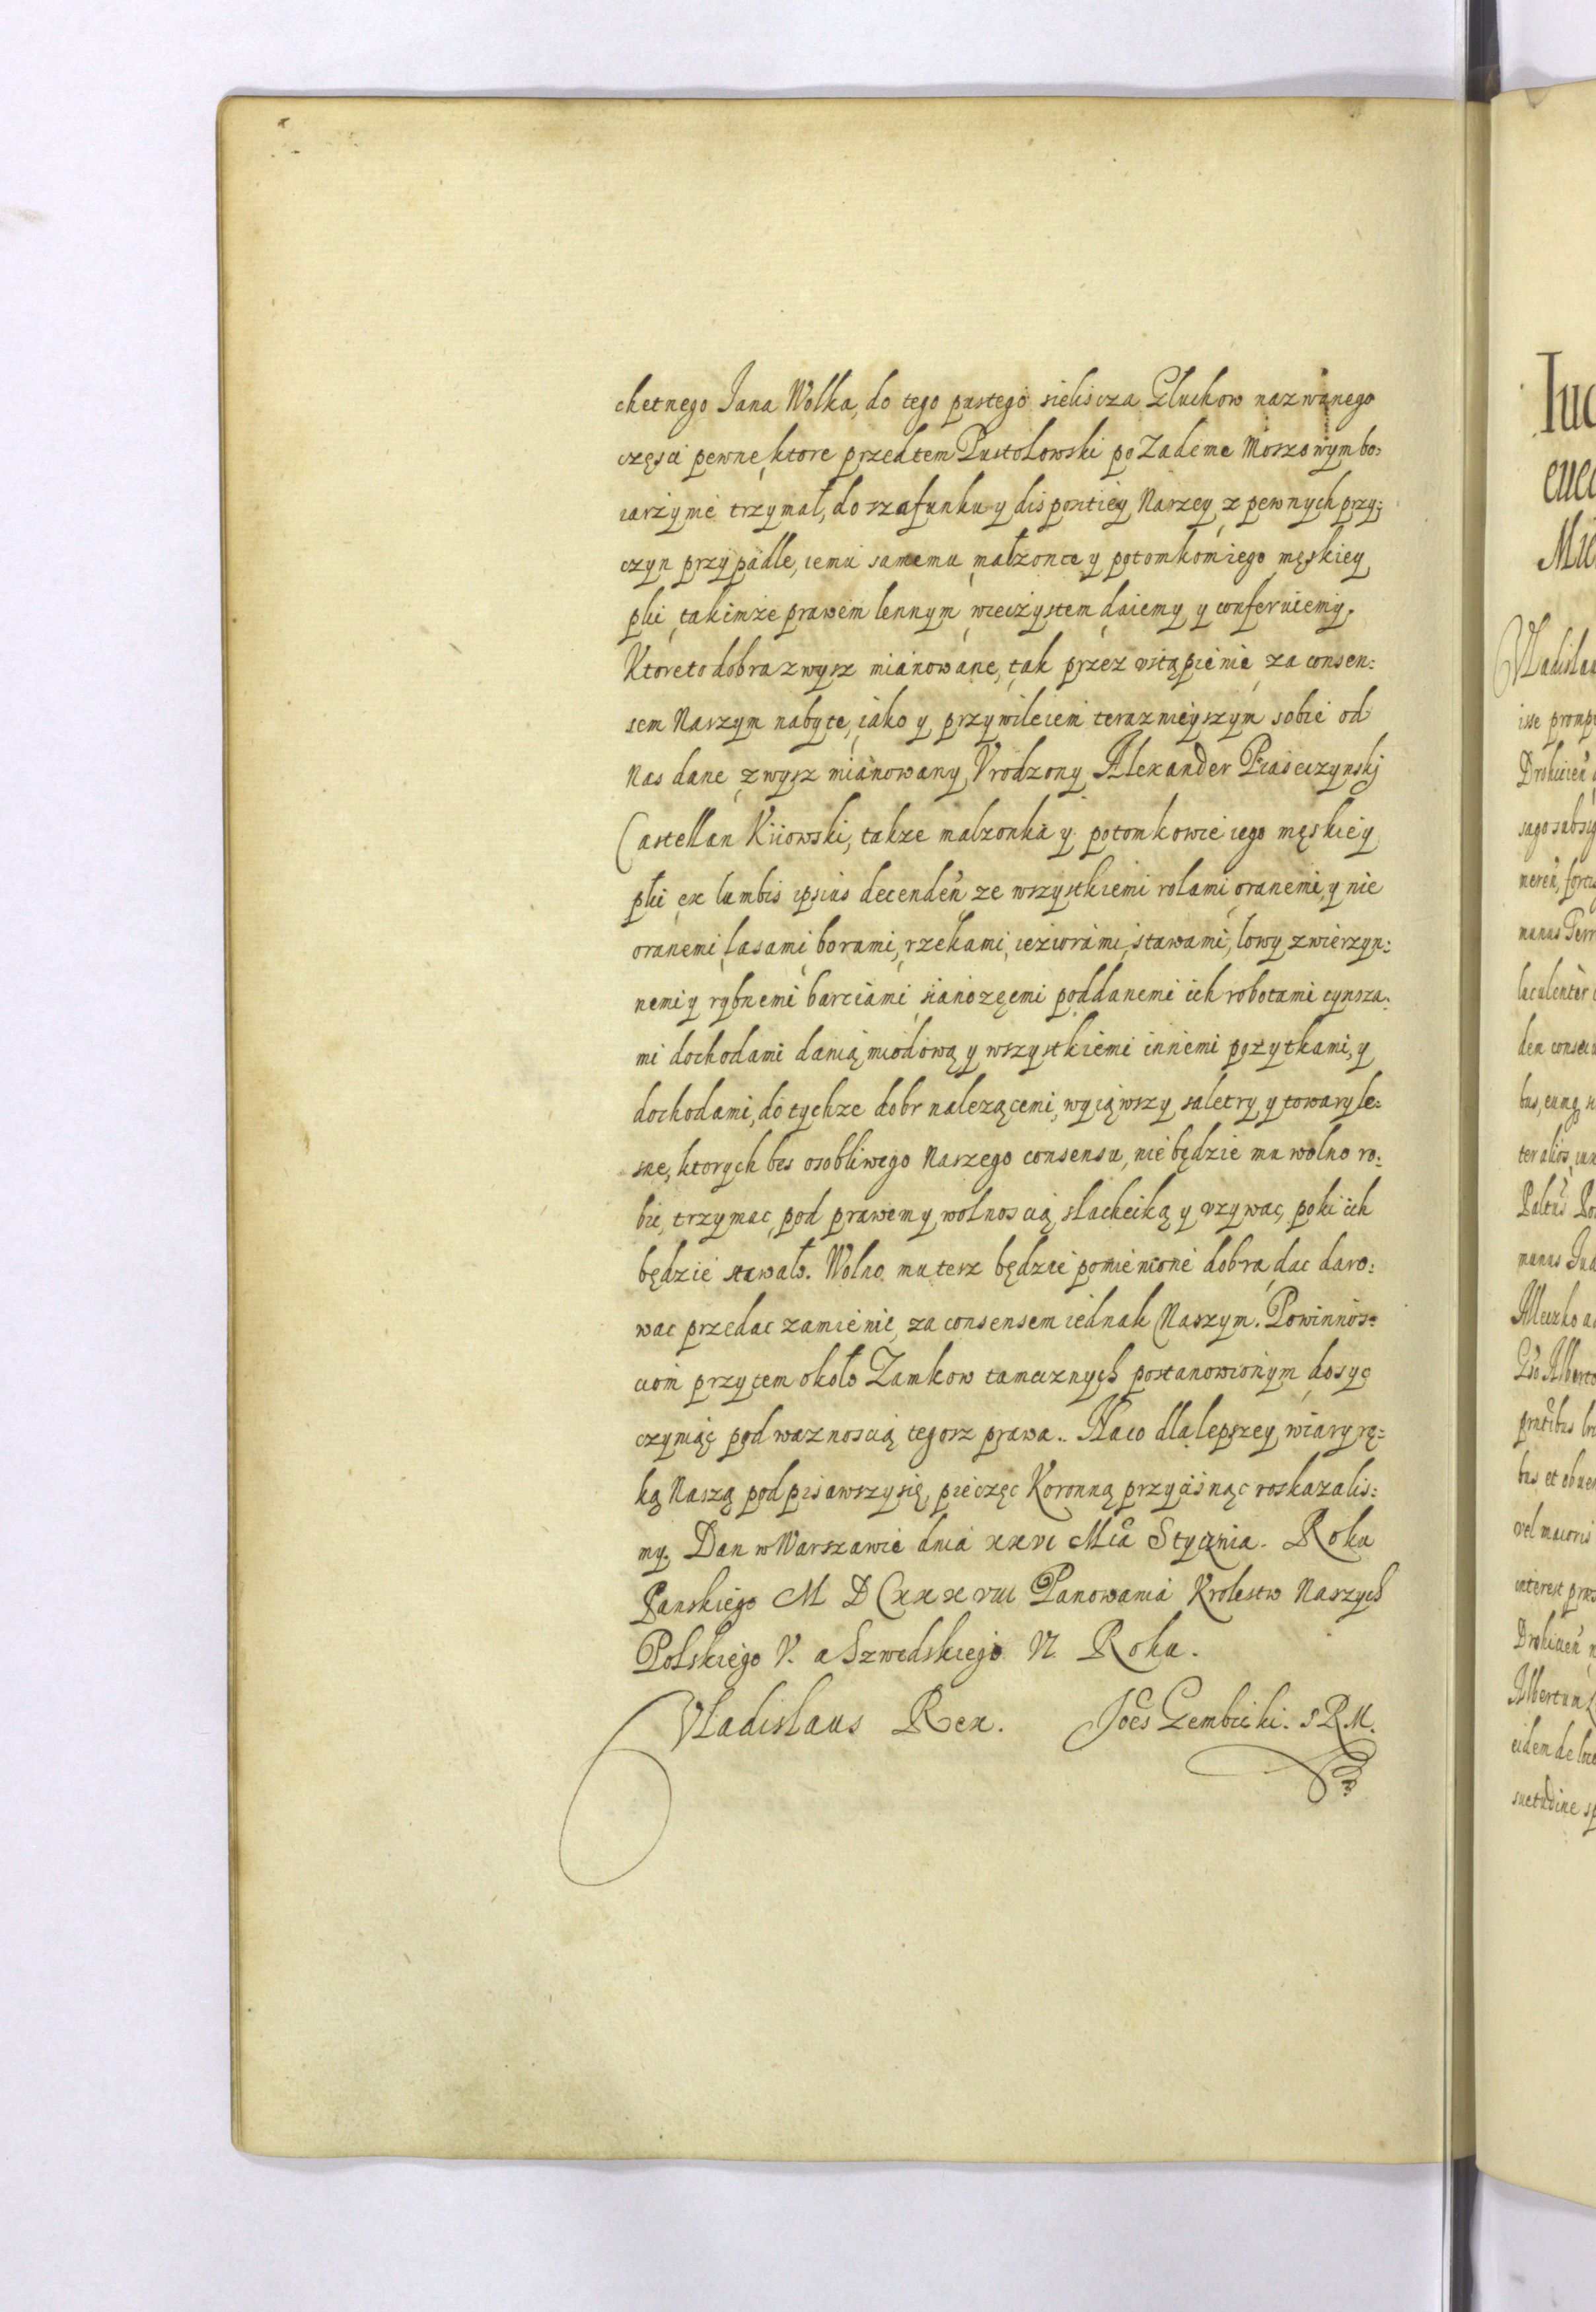 chetnego Jana Wolka, do tego pustego sieliscza Gluchow nazwanego
części pewne, ktore przedtem Pustolowski po Zademe Moszowym bo:
iarżynie trzymał, do szafunku y dispositiey Naszey z pewnych przy:
czyn przypadłe, iemu samemu małzonce y potomkom iego męskiey
płci takimże prawem lennym wieczystem daiemy y conferuiemy.
Ktore to dobra zwysz mianowane, tak przez vstąpienie za consen:
sem Naszym nabyte, iako y przywileiem terazniejszym sobie od
Nas dane zwysz mianowany Vrodzony Alexander Piaseczynskj
Castellan Kiiowski, takze malzonka y potomkowie iego męskiey
płci ex lumbis ipsius decendeñ ze wszystkiemi rolami oranemi, y nie
oranemi, lasami borami, rzekami, ieziorami, stawami, lowy zwierzyn:
nemi y rybnemi barciami, sianozęcmi poddanemi ich robotami cynsza:
mi dochodami danią miodową y wszystkiemi innemi pożytkami, y
dochodami, do tychze dobr nalezącemi, wyiąwszy saletry y towary le:
sne, ktorych bes osobliwego Naszego consensu, nie będzie mu wolno ro:
bic, trzymac, pod prawem y wolnoscią slachecką y vzywac, poki ich
będzie stawało. Wolno mu tesz będzie pomienione dobra, dac daro:
wac przedac zamienic, za consensem iednak Naszym. Powinnos:
ciom przytem około Zamkow tamecznych postanowionym dosyc
czyniąc pod waznoscią tegosz prawa. Na co dla lepszey wiary rę:
ką Naszą podpisawszy się, pieczęc Koronną przycisnąc roskazalis:
my. Dan w Warszawie dnia xxvi Mca Stycznia. Roku
Panskiego M D C xxxviii Panowania Krolestw Naszych
Polskiego V. a Szwedskiego VI. Roku.
Vladislaus Rex. Joẽs Gembicki. S R M.
Iuc
euec
Vladislau
isse promp
manus Terr
bus et obuen
vel maioris
interest pres
Albertum
eidem de loco
suetudine sp